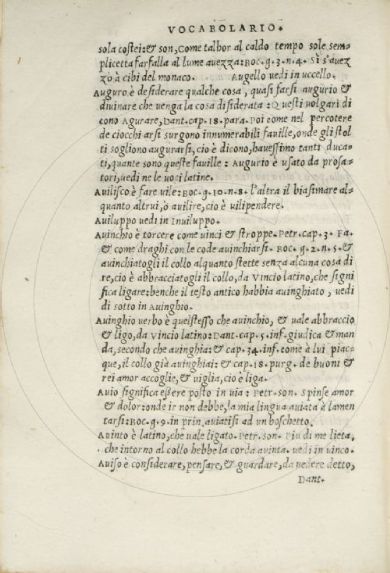 VOCABOLARIO.
sola costei: & son, Come talhor al caldo tempo sole sem
plicetta farfalla al lume auezza: BOC. g. 3. n. 4. Si s'auez
zò à cibi del monaco. Augello uedi in uccello.
Auguro è desiderare qualche cosa, quasi farsi augurio &
diuinare che uenga la cosa disiderata: Questi uolgari di
cono Agurare, Dant. cap. 18. para. Poi come nel percotere
de ciocchi arsi surgono innumerabili fauille, onde gli stol
ti sogliono augurarsi, cio è dicono, hauessimo tanti duca-
ti, quante sono queste fauille: Augurio è usato da prosa-
tori, uedi ne le uoci latine.
Auilisco è fare uile: BOC. g. 10. n. 8. l'altra il biasimare al-
quanto altrui, ò auilire, cio è uilipendere.
Auiluppo uedi in Inuiluppo.
Auinchio è torcere come uinci & stroppe. Petr. cap. 3. Fa.
& come draghi con le code auinchiarsi. BOC. g. 2. n. 5. &
auinchiatogli il collo alquanto stette senza alcuna cosa di
re, cio è abbracciatogli il collo, da Vincio latino, che signi
fica ligare: benche il testo antico habbia auinghiato, uedi
di sotto in Auinghio.
Auinghio uerbo è queistesso che auinchio, & uale abbraccio
& ligo, da Vincio latino: Dant. cap. 5. inf. giudica & man
da, secondo che auinghia: & cap. 34. inf. come à lui piac
que, il collo già auinghiai: & cap. 18. purg. de buoni &
rei amor accoglie, & uiglia, cio è liga.
Auio significa essere posto in uia: Petr. son. spinse amor
& dolor: onde ir non debbe, la mia lingua auiata è lamen
tarsi: BOC. g. 9. in prin. auiatisi ad un boschetto.
Auinto è latino, che uale ligato. Petr. son. Piu di me lieta,
che intorno al collo hebbe la corda auinta. uedi in uinco.
Auiso è considerare, pensare, & guardare, da uedere detto,
Dant.